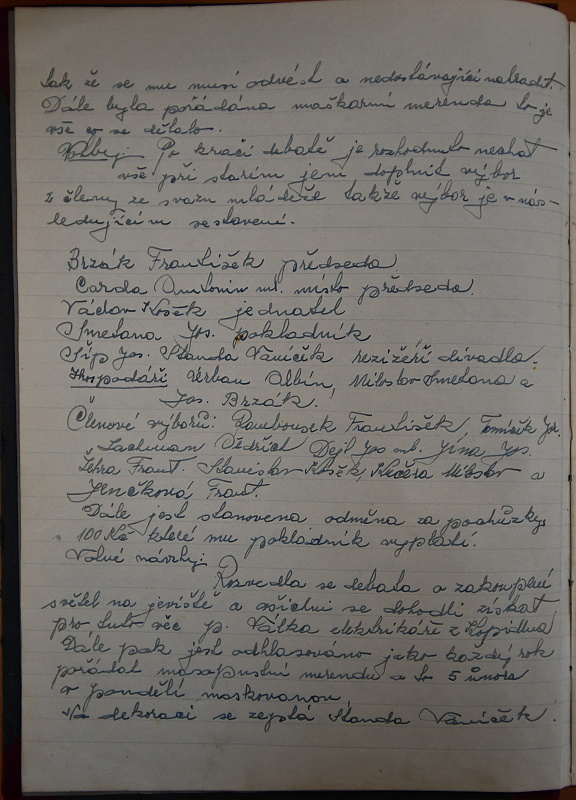 tak že se mu musí odvést a nedostávající nahradit.
Dále byla pořádána maškarní merenda to je
vše co se dělalo.
Volby: Po kračí debatě je rozhodnuto nechat
vše při starím jení doplnit výbor
z členy ze svazu mládeže takže výbor je v nás-
ledujícím sestavení.
Brzák František předseda
Čarda Antonín ml. místo předseda.
Václav Košek jednatel
Smetana Jos. pokladník
Šíp Jos. Standa Vaníček režižéři divadla.
Hospodáři Urban Albín, Miloslav Smetana a
Jos. Brzák.
Členové výborů: Rambousek František, Tomíček Jos.
Lachman Oldřich Dejl Jos ml. Jína Jos.
Šehra Frant. Stanislav Košek, Kučera Miloslav a
Jenčková Frant.
Dále jest stanovena odměna za pochůzky
100 Kč které mu pokladník vyplatí.
Volné návrhy:
Rozvedla se debata o zakoupení
světel na jeviště a všichni se dohodli získat
pro tuto věc p. Válka elektrikáře z Kopidlna
Dále pak jest odhlasováno jako každý rok
pořádat masopustní merendu a to 5 února
v pondělí maskovanou.
Na dekoraci se zeptá Standa Vaníček.